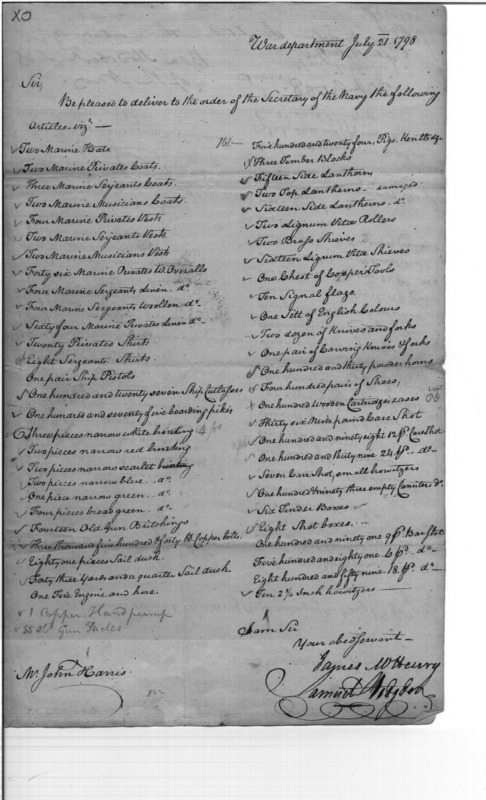 XO
War department July 21 1798
Sir,
Be pleased to deliver to the order of the Secretary of the Navy the following
Articles Vizt —
Two Marine Coats
Two Marine Privates Coats.
Three Marine Serjeants Coats.
Two Marine Musicians Coats.
Four Marine Privates Vests
Two Marine Serjeants Vests
Two Marine Musicians Vests
Forty six Marine Privates W. Overalls
Four Marine Sergeants Linen do
Four Marine Sergeants Woollen do-
Sixty four Marine Privates Linen do-
Twenty Privates Shirts
Eight Sergeants Shirts.
One pair Ship Pistols
One hundred and twenty seven Ship Cutlasses
One hundred and seventy five boarding pikes
Three pieces narrow white bunting
Two pieces narrow red bunting
Two pieces narrow scarlet bunting
Two pieces narrow blue .. do
One piece narrow green .. do
Four pieces broad green .. do
Fourteen Old Gun Britchings
Three thousand five hundred & forty lb. Copper bolts.
Eighty one pieces Sail duck.
Forty three Yards and a quarter Sail duck.
One Fire Engine and hose.
1 Copper Hand pump
Gun Tackles
Five hundred and twenty four, Pigs, Kentledge
Three Timber Blocks
Fifteen Side Lanthorn
Two Top Lantherns - damaged
Sixteen Side Lantherns - do-
Two Lignum Vitæ Rollers
Two Brass Shieves
Sixteen Lignum Vitæ Shieves
One Chest of Coopers Tools
Ten Signal flags
One Sett of English Colours
Two dozen of Knives and forks
One pair of Carving Knives & forks
One hundred and thirty powder horns
Four hundred pairs of Shoes,
One hundred Wooden Cartridge cases
Thirty six Music pand Case Shot
One hundred and ninety eight 12 pr. Case Shot.
One hundred and thirty nine 24 pr - do-
Seven Case Shot, small howitzers
One hundred & ninety three empty Canisters do
Six Tinder Boxes
Eight Shot boxes.
One hundred and ninety one 9 pr. Bar Shot
Five hundred and eighty one 6 pr. do-
Eight hundred and fifty nine 18 pr. do-
Ten 2¾ Inch howitzers —
I am Sir
Your obed Servant —
James McHenry
Samuel Hodgdon
Mr. John Harris